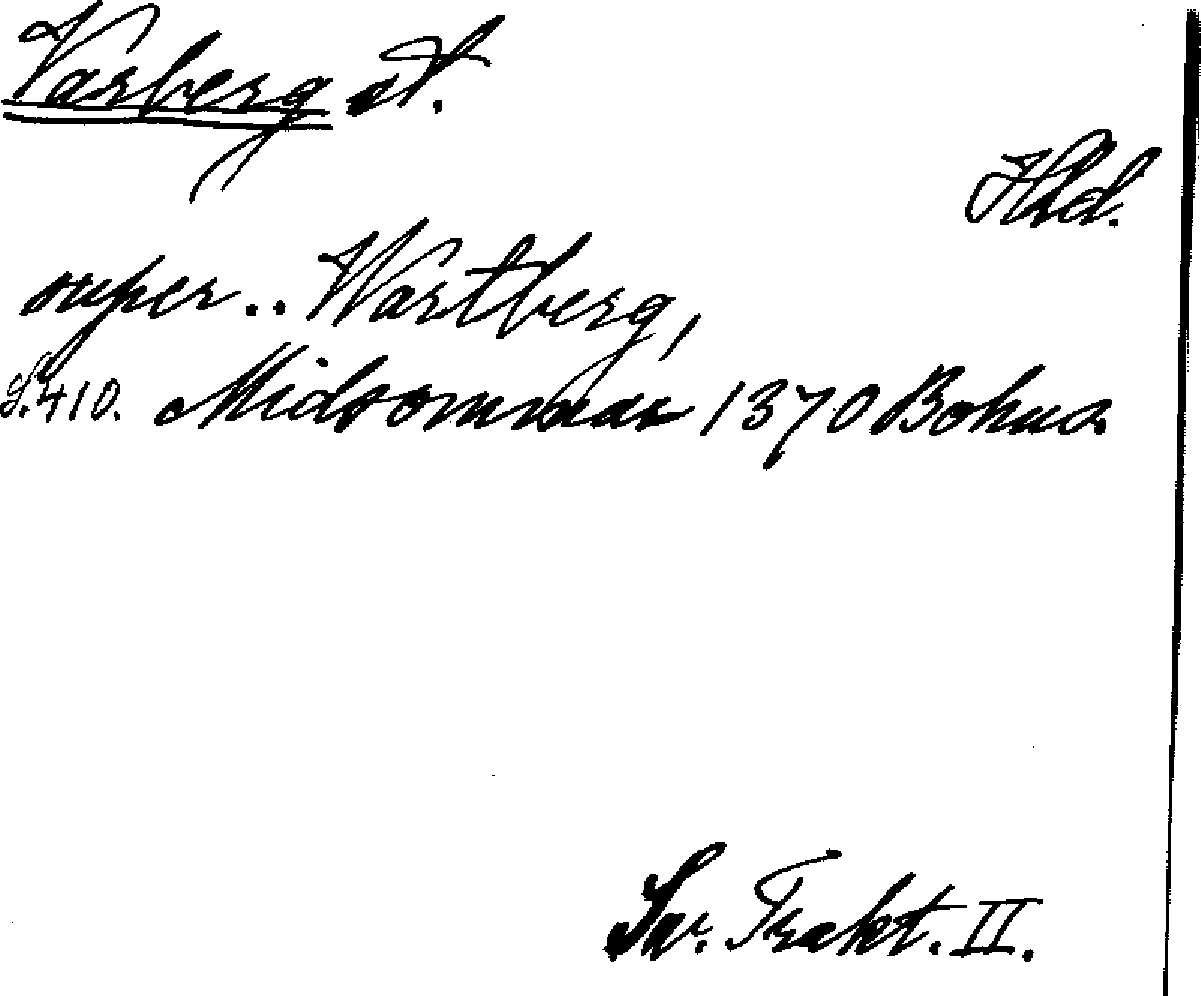 Varberg st.
Hld.
super .. Wartberg,
S. 410. Midsommar 1370 Bohus.
Sv. Trakt. II.